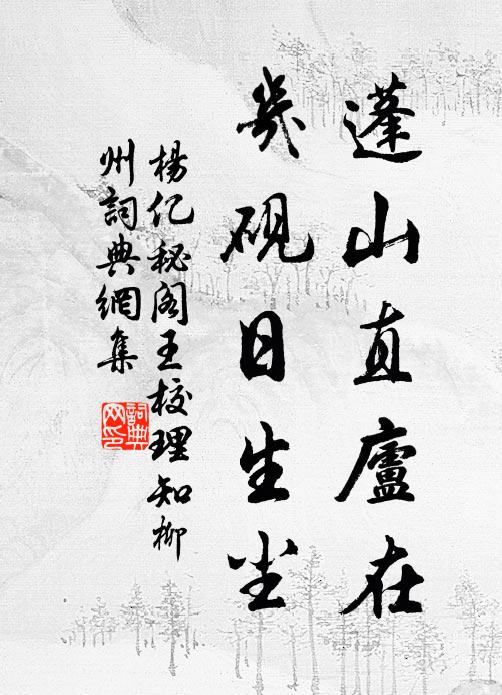 蓬山直廬在
几硯日生尘
楊亿秘阁王校理知柳
州詞典網集
詞典网印